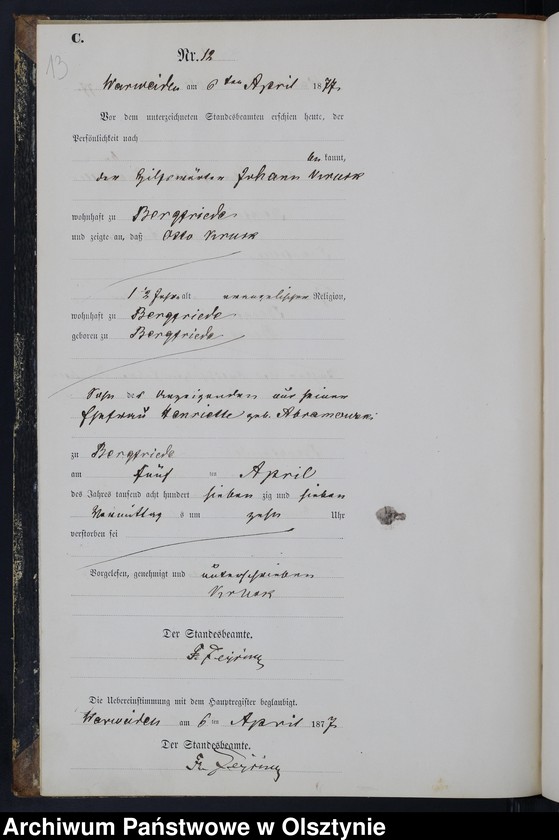 C.
13
Nr. 12
Warweiden am 6ten April 1877
Vor dem unterzeichneten Standesbeamten erschien heute, der
Persönlichkeit nach
be kannt,
der Hilfswärter Johann Kruck
wohnhaft zu Bergfriede
und zeigte an, daß Otto Kruck
1 1/2 Jahr alt evangelischer Religion,
wohnhaft zu Bergfriede
geboren zu Bergfriede
Sohn des Anzeigenden und seiner
Ehefrau Henriette geb. Abramowski
zu Bergfriede
am fünf ten April
des Jahres tausend acht hundert sieben zig und sieben
Vormittag s um zehn Uhr
verstorben sei
Vorgelesen, genehmigt und unterschrieben
Kruck
Der Standesbeamte.
Fr.
Die Uebereinstimmung mit dem Hauptregister beglaubigt.
Warweiden am 6ten April 1877
Der Standesbeamte.
Fr.
Archiwum Państwowe w Olsztynie